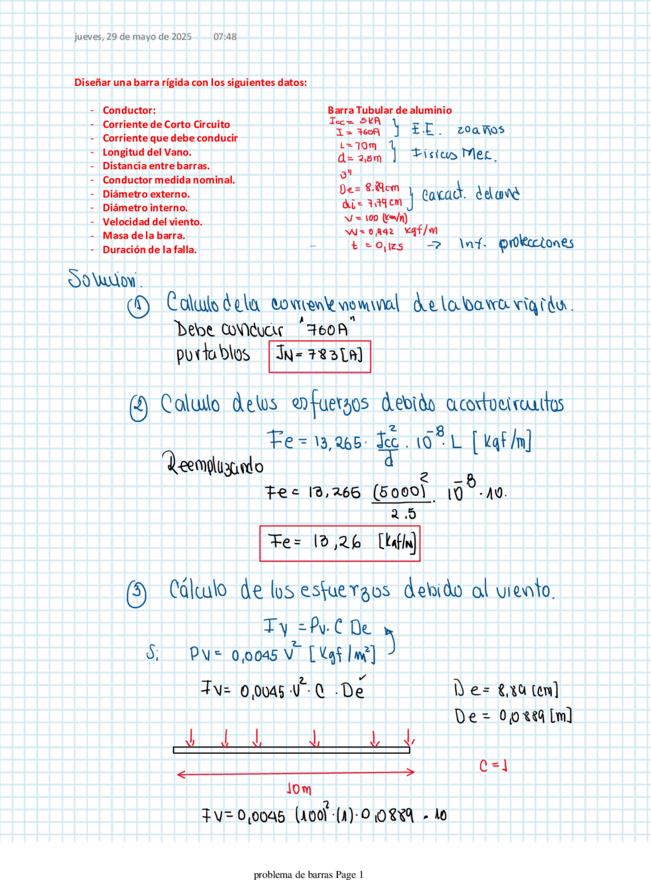 jueves, 29 de mayo de 2025 07:48
Diseñar una barra rígida con los siguientes datos:
- Conductor: Barra Tubular de aluminio
- Corriente de Corto Circuito Icc = 5KA
- Corriente que debe conducir I = 760A } I.E. 20años
- Longitud del Vano. L = 70m
- Distancia entre barras. d = 2,5m } Fisicos Mec.
- Conductor medida nominal. 3"
- Diámetro externo. De = 8.89cm
- Diámetro interno. di = 7,79cm } caract. delcond
- Velocidad del viento. V = 100 [km/h]
- Masa de la barra. W = 0,442 kgf/m
- Duración de la falla. t = 0,125 → Inf. protecciones
Solucion.
① Calculo de la corriente nominal de la barra rigida.
Debe conducir "760A"
por tablas IN = 783 [A]
② Calculo de los esfuerzos debido a cortocircuitos
Fe = 13,265 · Icc²/d · 10⁻⁸ · L [kgf/m]
Reemplazando
Fe = 13,265 (5000)²/2.5 · 10⁻⁸ · 10.
Fe = 13,26 [kgf/m]
③ Cálculo de los esfuerzos debido al viento.
Fv = Pv. C De
Si Pv = 0,0045 V² [kgf/m²]
Fv = 0,0045 · V² · C · De
De = 8,89 [cm]
De = 0,0889 [m]
C = 1
10m
Fv = 0,0045 (100)² · (1) · 0,0889 · 10
problema de barras Page 1